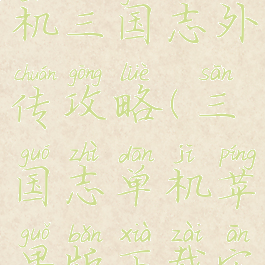 机三国志外
chuán gōng lüè sān
传攻略(三
guó zhì dān jī píng
国志单机苹
guǒ bǎn xià zài ān
果版下载安